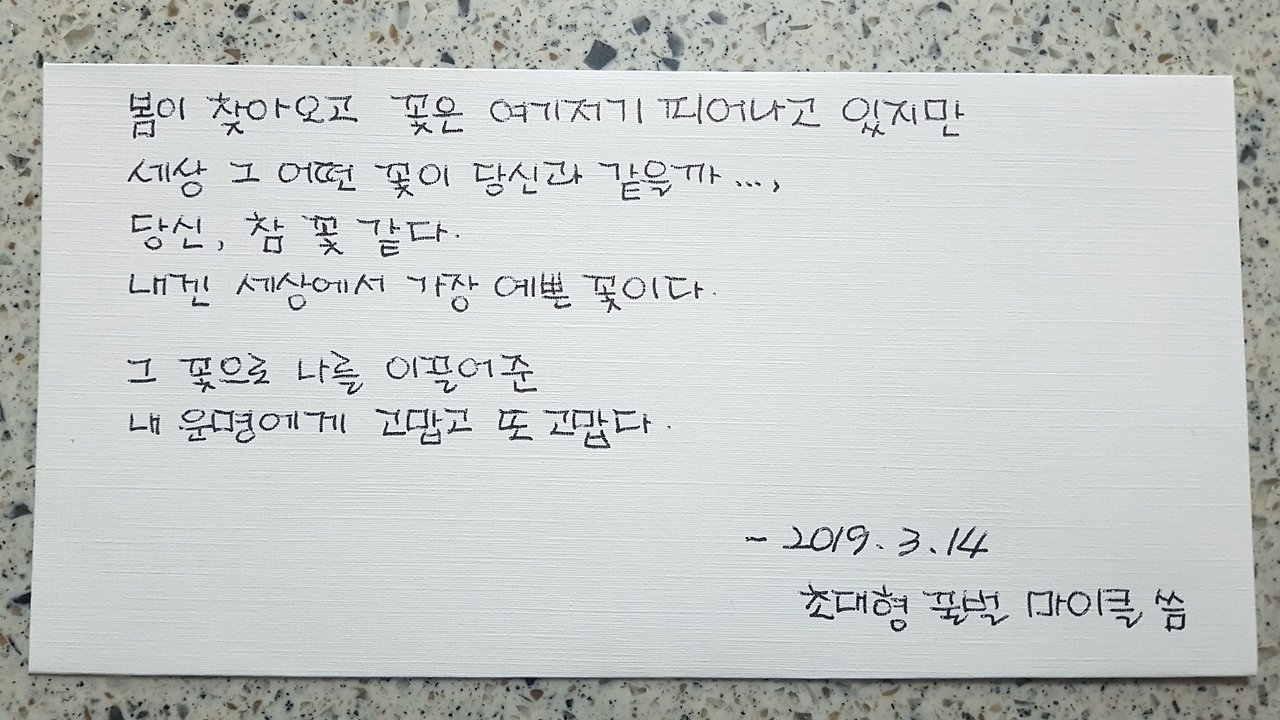 봄이 찾아오고 꽃은 여기저기 피어나고 있지만
세상 그 어떤 꽃이 당신과 같을까...,
당신, 참 꽃 같다.
내겐 세상에서 가장 예쁜 꽃이다.
그 꽃으로 나를 이끌어준
내 운명에게 고맙고 또 고맙다.
- 2019. 3. 14
초대형 꿀벌 마이클 씀